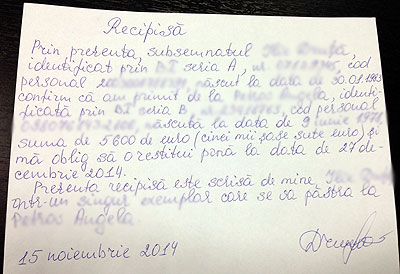 Recipisă
Prin prezenta, subsemnatul
identificat prin BI seria A, nr. cod
personal născut la data de 30.01.1963
confirm că am primit de la Angela, identi-
ficată prin BI seria B, cod personal
născută la data de 9 iunie 1971,
suma de 5 600 de euro (cinci mii șase sute euro) și
mă oblig să o restitui până la data de 27 de-
cembrie 2014.
Prezenta recipisă este scrisă de mine,
într-un singur exemplar care se va păstra la
Petras Angela
15 noiembrie 2014